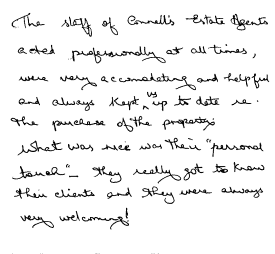 The staff of Connell's Estate Agents
acted professionally at all times,
were very accomodating and helpful
and always kept us up to date re.
the purchase of the property.
What was nice was their "personal
touch" - they really got to know
their clients and they were always
very welcoming!